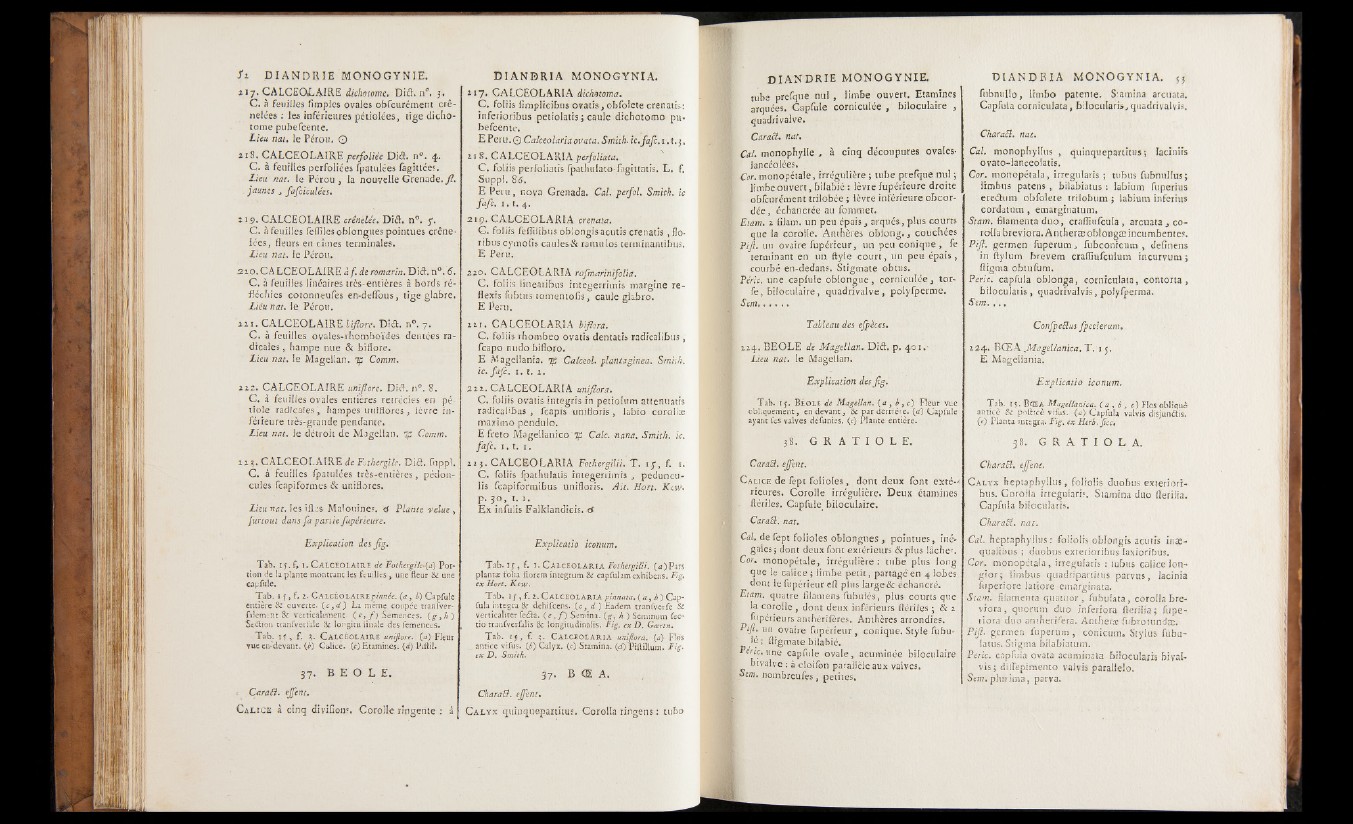 52 DIANDRIE MONOGYNIE.
217. CALCEOLAIRE dichotome. Dict. n°. 3.
C. à feuilles simples ovales obscurément cré-
nelées : les inférieures pétiolées, tige dicho-
tome pubescente.
Lieu nat. le Pérou. ☉
218. CALCEOLAIRE perfoliée Dict. n°. 4.
C. à feuilles perfoliées spatulées sagittées.
Lieu nat. le Pérou, la nouvelle Grenade. fl.
jaunes, fasciculées.
219. CALCEOLAIRE crénelée. Dict. n°. 5.
C. à feuilles sessiles oblongues pointues créne-
lées, fleurs en cimes terminales.
Lieu nat. le Pérou.
220. CALCEOLAIRE à f. de romarin. Dict. n°. 6.
C. à feuilles linéaires très-entières à bords ré-
fléchies cotonneuses en-dessous, tige glabre.
Lieu nat. le Pérou.
221. CALCEOLAIRE biflore. Dict. n°. 7.
C. à feuilles ovales-rhomboïdes dentées ra-
dicales, hampe nue & biflore.
Lieu nat. le Magellan. ♃ Comm.
222. CALCEOLAIRE uniflore. Dict. n°. 8.
C. à feuilles ovales entières retrécies en pé-
tiole radicales, hampes uniflores, lèvre in-
férieure très-grande pendante.
Lieu nat. le détroit de Magellan. ♃ Comm.
223. CALCEOLAIRE de Fothergile. Dict. suppl.
C. à feuilles spatulées très-entières, pédon-
cules scapiformes & uniflores.
Lieu nat. les isles Malouines. ♂ Plante velue,
surtout dans sa partie supérieure.
Explication des fig.
Tab. 15. f. 1. CALCEOLAIRE de Fothergile. (a) Por-
tion de la plante montrant les feuilles, une fleur & une
capsule.
Tab. 15, f. 2. CALCEOLAIRE pinnée. (a, b) Capsule
entière & ouverte. (c, d) La même coupée transver-
salement & verticalement (e, f) Semences. (g, h)
Section transversale & longitudinale des semences.
Tab. 15, f. 3. CALCEOLAIRE uniflore. (a) Fleur
vue en-devant. (b) Calice. (c) Etamines. (d) Pistil.
37. BEOLE.
Caract. essent.
CALICE à cinq divisions. Corolle ringente : à
DIANDRIA MONOGYNIA.
217. CALCEOLARIA dichotoma.
C. foliis simplicibus ovatis, obsolete crenatis :
inferioribus petiolatis ; caule dichotomo pu-
bescente.
E Peru. ☉ Calceolaria ovata. Smith. ic. fasc. 1. t. 3.
218. CALCEOLARIA perfoliata.
C. foliis perfoliatis spathulato-sagittatis. L. f.
Suppl. 86.
E Peru, nova Grenada. Cal. perfol. Smith. ic
fasc. 1. t. 4.
219. CALCEOLARIA crenata.
C. foliis sessilibus oblongis acutis crenatis, flo-
ribus cymosis caules & ramulos terminantibus.
E Peru.
220. CALCEOLARIA rosmarinifolia.
C. foliis linearibus integerrimis margine re-
flexis subtus tomentosis, caule glabro.
E Peru.
221. CALCEOLARIA biflora.
C. foliis rhombeo ovatis dentatis radicalibus,
scapo nudo bifloro.
E Magellania. ♃ Calceol. plantaginea. Smith.
ic. fasc. 1. t. 2.
222. CALCEOLARIA uniflora.
C. foliis ovatis integris in petiolum attenuatis
radicalibus, scapis unifloris, labio corollæ
maximo pendulo.
E freto Magellanico ♃ Calc. nana. Smith. ic.
fasc. 1. t. 1.
223. CALCEOLARIA Fothergilii. T. 15, f. 1.
C. foliis spathulatis integerrimis, peduncu-
lis scapiformibus unifloris. Ait. Hort. Kew.
p. 30, t. 1.
Ex insulis Falklandicis. ♂
Explicatio iconum.
Tab. 15, f. 1. CALCEOLARIA Fothergilii. (a) Pars
plantæ folia florem integrum & capsulam exhibens. Fig.
ex Hort. Kew.
Tab. 15, f. 2. CALCEOLARIA pinnata. (a, b) Cap-
sula integra & dehiscens. (c, d) Eadem transverse &
verticaliter secta. (e, f) Semina. (g, h) Seminum sec-
tio transversalis & longitudinalis. Fig. ex D. Gærtn.
Tab. 15, f. 3. CALCEOLARIA uniflora. (a) Flos
antice visus. (b) Calyx. (c) Stamina. (d) Pistillum. Fig.
ex D. Smith.
37. BŒA.
Charact. essent.
CALYX quinquepartitus. Corolla ringens : tubo
DIANDRIE MONOGYNIE.
tube presque nul, limbe ouvert. Etamines
arquées. Capsule corniculée, biloculaire,
quadrivalve.
Caract. nat.
Cal. monophylle, à cinq découpures ovales-
lancéolées.
Cor. monopétale, irrégulière ; tube presque nul ;
limbe ouvert, bilabié : lèvre supérieure droite
obscurément trilobée ; lèvre inférieure obcor-
dée, échancrée au sommet.
Etam. 2 filam. un peu épais, arqués, plus courts
que la corolle. Anthères oblong., couchées
Pist. un ovaire supérieur, un peu conique, se
terminant en un style court, un peu épais,
courbé en-dedans. Stigmate obtus.
Péric. une capsule oblongue, corniculée, tor-
se, biloculaire, quadrivalve, polysperme.
Sem. . . . . .
Tableau des espèces.
224. BEOLE de Magellan. Dict. p. 401.
Lieu nat. le Magellan.
Explication des fig.
Tab. 15. BEOLE de Magellan. (a, b, c) Fleur vue
obliquement, en devant, & par derrière. (d) Capsule
ayant ses valves désunies. (e) Plante entière.
38. GRATIOLE.
Caract. essent.
CALICE de sept folioles, dont deux sont exté-
rieures. Corolle irrégulière. Deux étamines
stériles. Capsule biloculaire.
Caract. nat.
Cal. de sept folioles oblongues, pointues, iné-
gales ; dont deux sont extérieurs & plus lâches.
Cor. monopétale, irrégulière : tube plus long
que le calice ; limbe petit, partagé en 4 lobes
dont le supérieur est plus large & échancré.
Etam. quatre filamens subulés, plus courts que
la corolle, dont deux inférieurs stériles ; & 2
supérieurs antherifères. Anthères arrondies.
Pist. un ovaire supérieur, conique. Style subu-
lé ; stigmate bilabié.
Péric. une capsule ovale, acuminée biloculaire
bivalve : à cloison parallèle aux valves.
Sem. nombreuses, petites.
DIANDRIA MONOGYNIA. 53
subnullo, limbo patente. Stamina arcuata.
Capsula corniculata, bilocularis, quadrivalvis.
Charact. nat.
Cal. monophyllus, quinquepartitus ; laciniis
ovato-lanceolatis.
Cor. monopétala, irregularis ; tubus subnullus ;
limbus patens, bilabiatus : labium superius
erectum obsolete trilobum ; labium inferius
cordatum, emarginatum.
Stam. filamenta duo, crassiuscula, arcuata, co-
rolla breviora. Antheræ oblongæ incumbentes.
Pist. germen superum, subconicum, desinens
in stylum brevem crassiusculum incurvum ;
stigma obtusum.
Peric. capsula oblonga, corniculata, contorta,
bilocularis, quadrivalvis, polysperma.
Sem. . . .
Conspectus specierum.
224. BŒA Magellanica. T. 15.
E Magellania.
Explicatio iconum.
Tab. 15. BŒA Magellanica. (a, b, c) Flos obliquè
anticè & posticè visus. (d) Capsula valvis disjunctis.
(e) Planta integra. Fig. ex Herb. sicc.
38. GRATIOLA.
Charact. essent.
CALYX heptaphyllus, foliolis duobus exteriori-
bus. Corolla irregularis. Stamina duo sterilia.
Capsula bilocularis.
Charact. nat.
Cal. heptaphyllus : foliolis oblongis acutis inæ-
qualibus ; duobus exterioribus laxioribus.
Cor. monopétala, irregularis : tubus calice lon-
gior ; limbus quadripartitus parvus, lacinia
superiore latiore emarginata.
Stam. filamenta quatuor, subulata, corolla bre-
viora, quorum duo inferiora sterilia ; supe-
riora duo antherifera. Antheræ subrotundæ.
Pist. germen superum, conicum. Stylus subu-
latus. Stigma bilabiatum.
Peric. capsula ovata acuminata bilocularis bival-
vis ; dissepimento valvis parallelo.
Sem. plurima, parva.